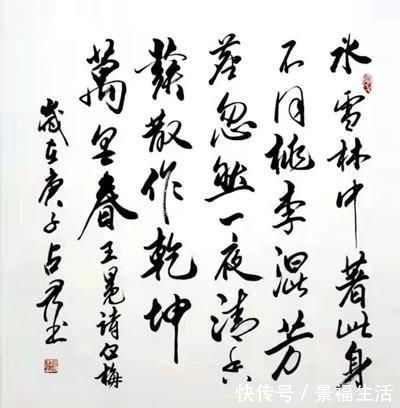 氷雪林中著此身
不同桃李混芳
塵忽然一夜清香
發散作乾坤
萬里春 王冕詩白梅
歲在庚子占君书
快传号 / 景福生活